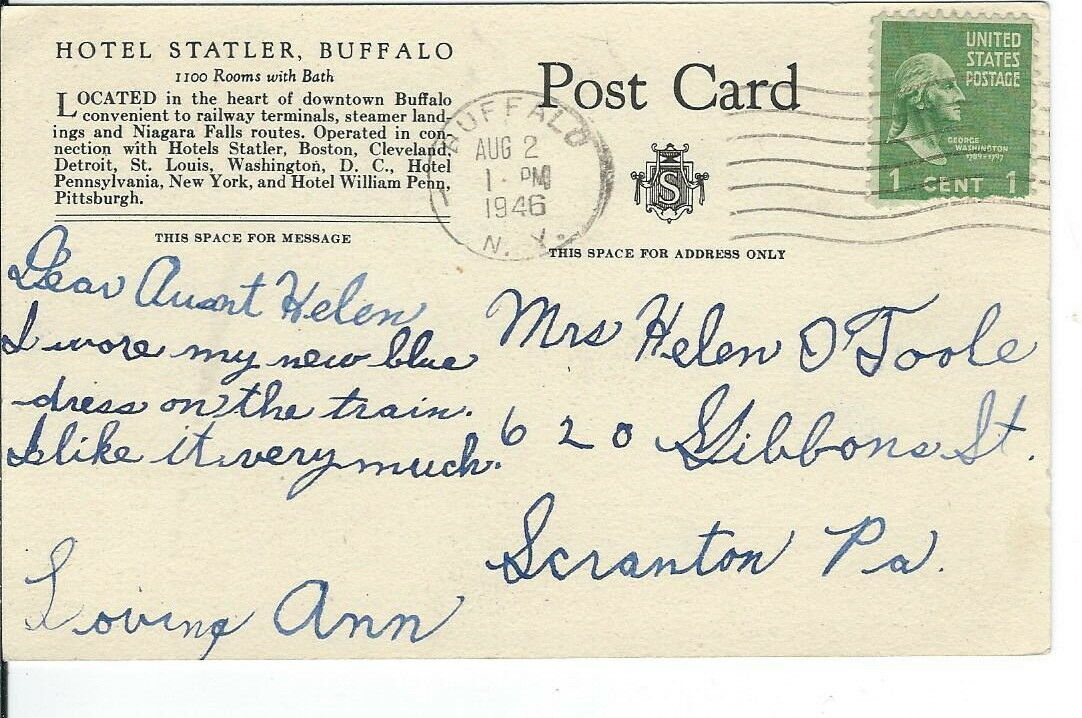 HOTEL STATLER, BUFFALO
1100 Rooms with Bath
LOCATED in the heart of downtown Buffalo
convenient to railway terminals, steamer land-
ings and Niagara Falls routes. Operated in con-
nection with Hotels Statler, Boston, Cleveland,
Detroit, St. Louis, Washington, D. C., Hotel
Pennsylvania, New York, and Hotel William Penn,
Pittsburgh.
THIS SPACE FOR MESSAGE
Dear Auant Helen
I wore my new blue
dress on the train.
I like it very much.
Loving Ann
Post Card
BUFFALO
AUG 2
1 - PM
1946
N. Y.
S
UNITED
STATES
POSTAGE
GEORGE
WASHINGTON
1789-1797
1 CENT 1
THIS SPACE FOR ADDRESS ONLY
Mrs Helen O'Toole
620 Gibbons St.
Scranton Pa.